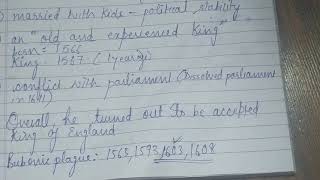 ) married with kids - political stability
) an "old and experienced King"
born = 1566
King = 1567 (1 year age)
conflict with parliament (Dissolved parliament
in 1611)
Overall, he turned out to be accepted
King of England
Bubonic plague: 1563, 1593, 1603, 1608